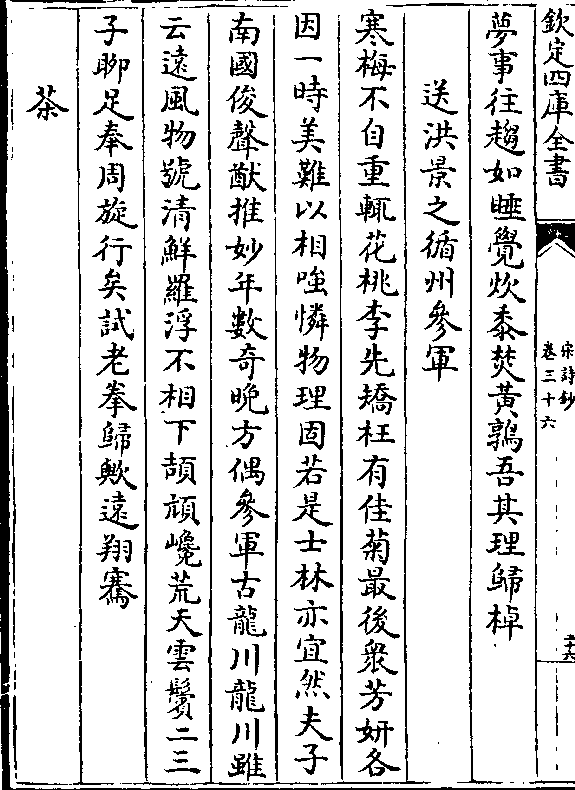 欽定四庫全書
宋詩鈔
卷三十六
二十六
夢事往趨如睡覺炊黍焚黃鶉吾其理歸棹
送洪景之循州參軍
寒梅不自重輒花桃李先矯枉有佳菊最後衆芳妍各
因一時美難以相嗤憐物理固若是士林亦宜然夫子
南國俊聲猷推妙年數奇晚方偶參軍古龍川龍川雖
云遠風物號清鮮羅浮不相下頡頏巉荒天雲鬢二三
子聊足奉周旋行矣試老拳歸歟遠翔騫
茶